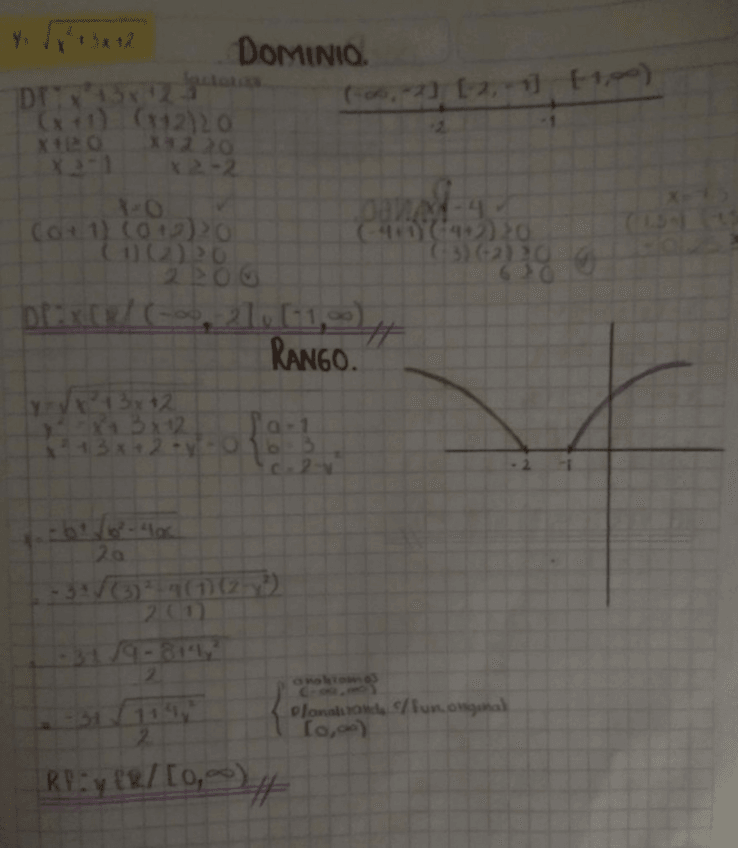 y= √x²+3x+2
DOMINIO.
Df: x²+3x+2 ≥
(x+1) (x+2)≥0
x+1≥0 x+2≥0
x≥-1 x≥-2
(-∞,-2] [-2,-1] [-1,∞)
-2 -1
x=0 ✓
(0+1) (0+2)≥0
(1)(2)≥0
2≥0 ✓
-4 ✓
(-4+1)(-4+2)≥0
(-3)(-2)≥0
6≥0
Df: x∈R/ (-∞,-2]∪[-1,∞)
RANGO.
y=√x²+3x+2
y²=x²+3x+2
x²+3x+2-y²=0
a=1
b=3
c=2-y²
-2 -1
-b±√b²-4ac
2a
-3±√(3)²-4(1)(2-y²)
2(1)
-3±√9-8+4y²
2
= -3±√1+4y²
2
analizamos
(-∞,∞)
P/analizando c/fun. original
[0,∞)
Rf: y∈R/ [0,∞)